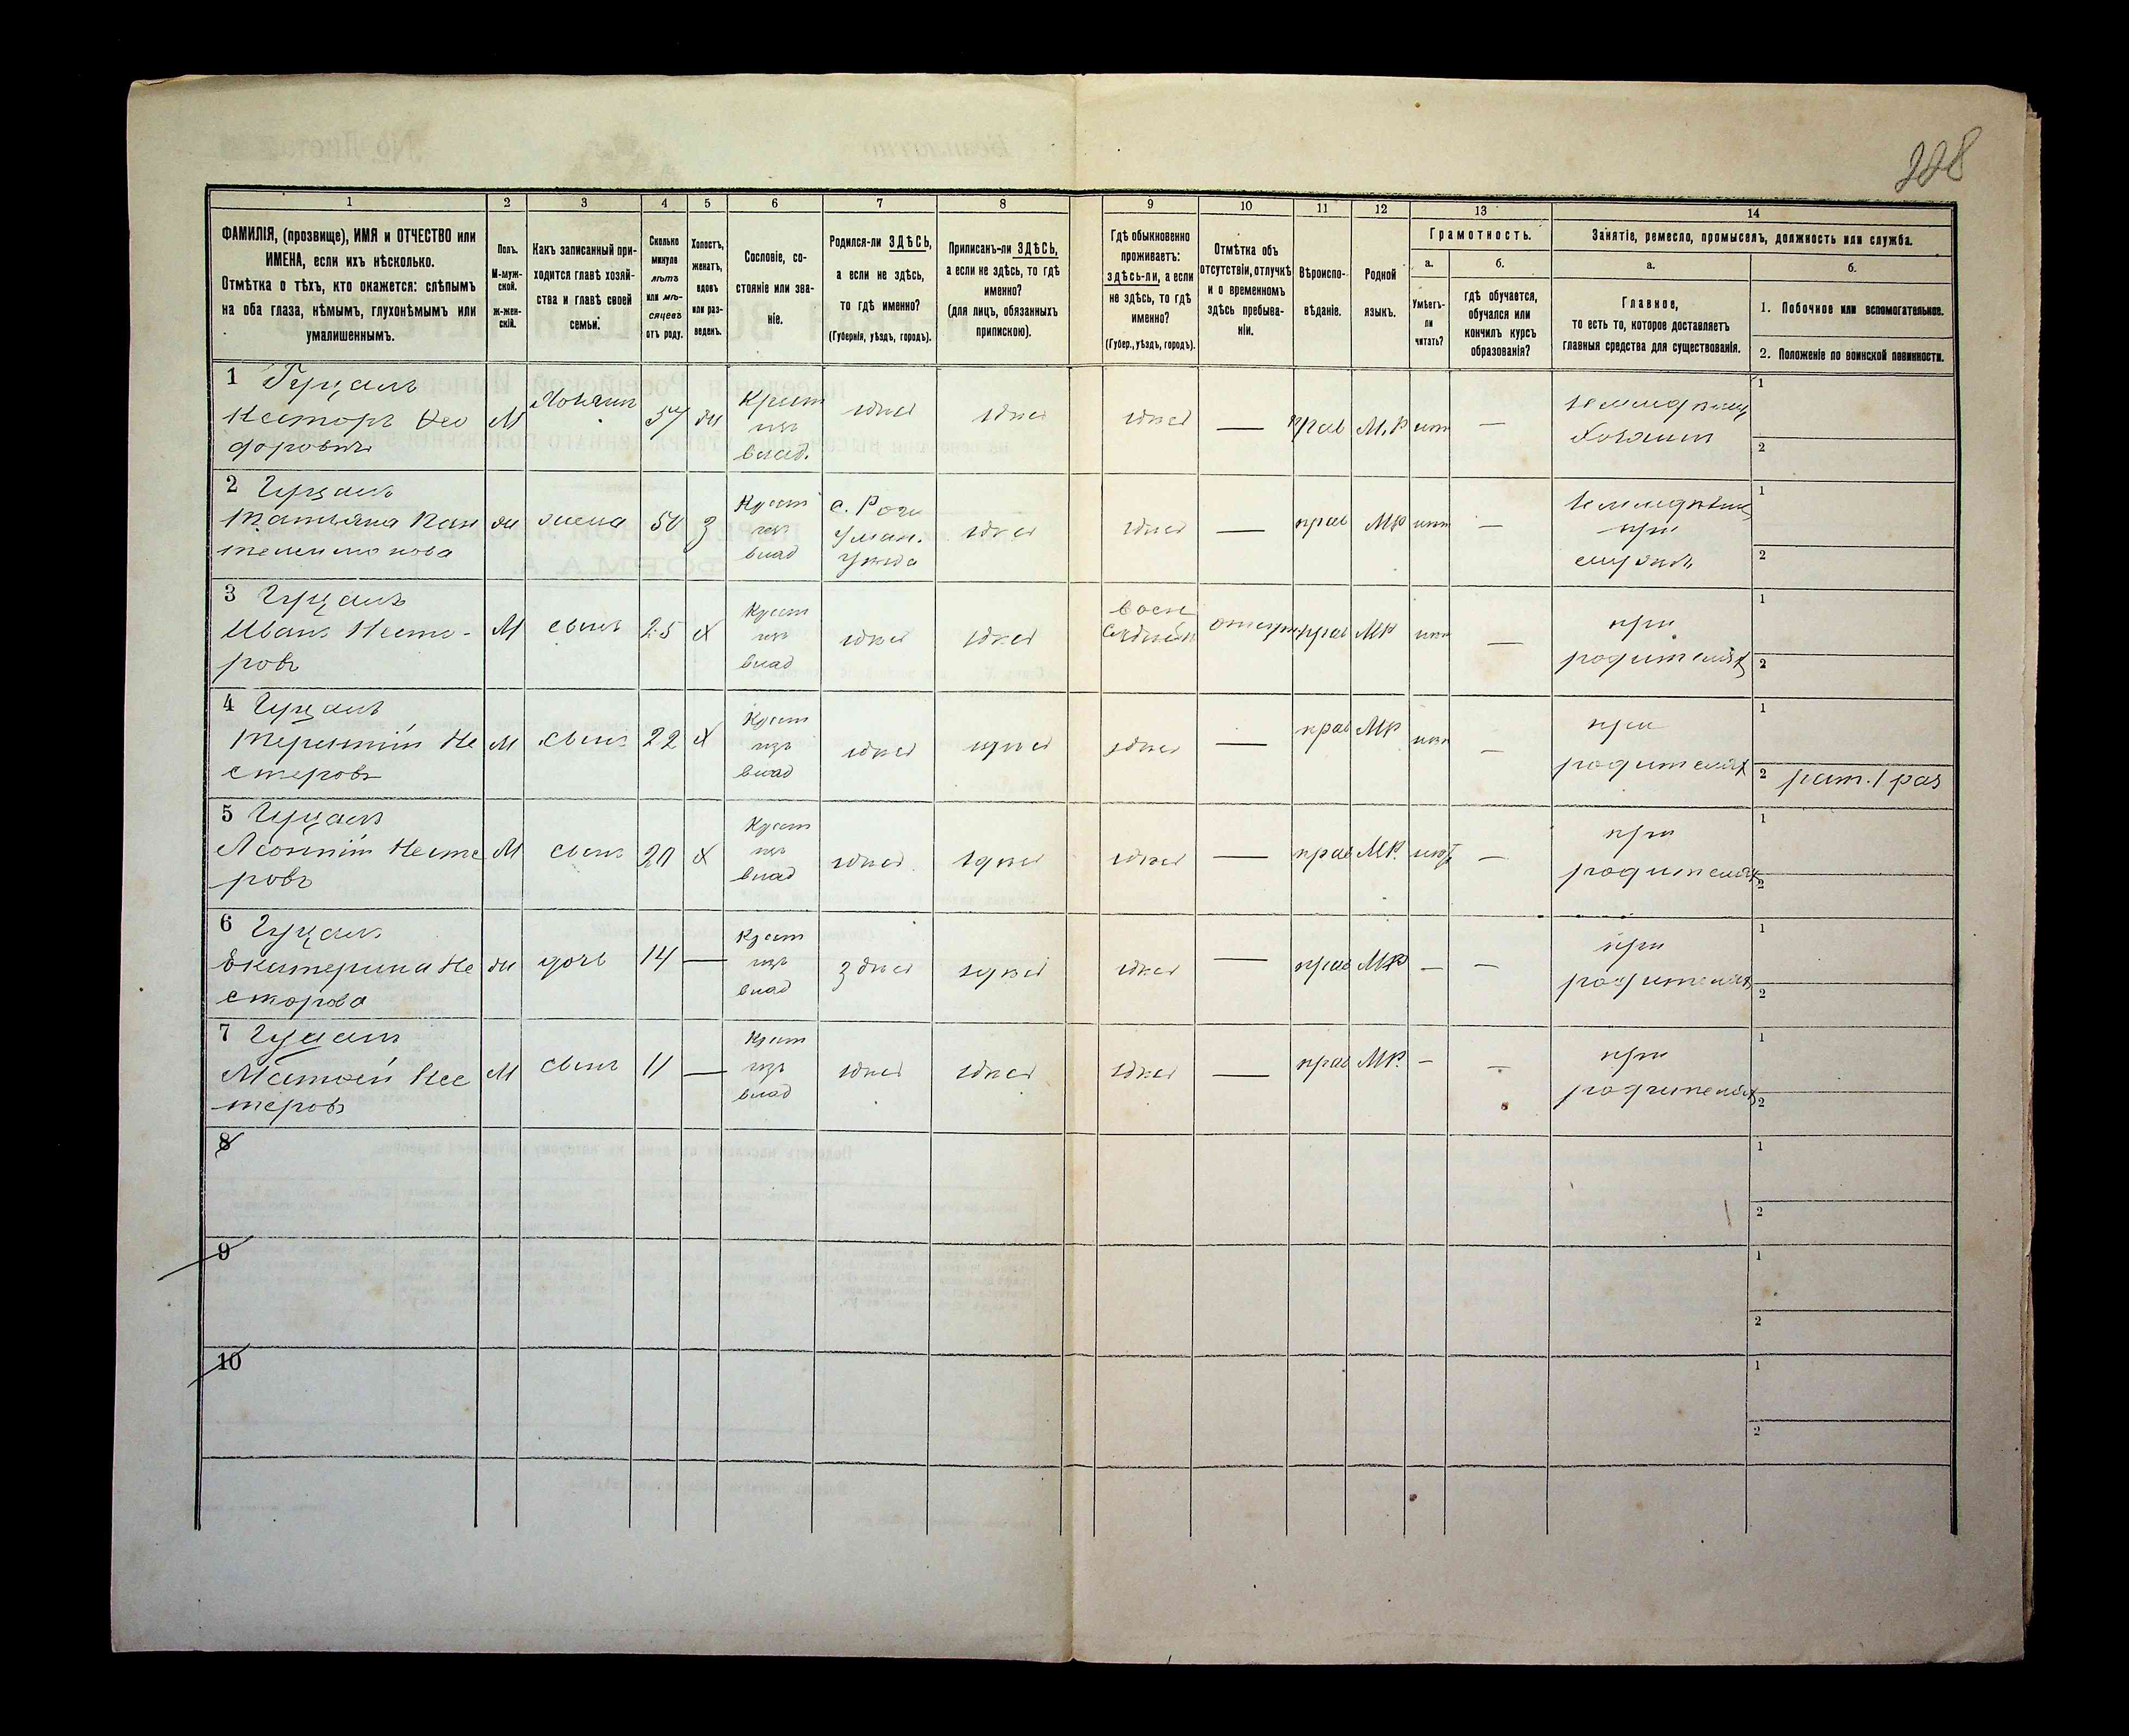 228
1 2 3 4 5 6 7 8 9 10 11 12 13 14
ФАМИЛІЯ, (прозвище), ИМЯ и ОТЧЕСТВО или
ИМЕНА, если ихъ нѣсколько.
Отмѣтка о тѣхъ, кто окажется: слѣпымъ
на оба глаза, нѣмымъ, глухонѣмымъ или
умалишеннымъ.
Полъ.
М-муж-
ской.
Ж-жен-
скій.
Какъ записанный при-
ходится главѣ хозяй-
ства и главѣ своей
семьи.
Сколько
минуло
лѣтъ
или мѣ-
сяцевъ
отъ роду.
Холостъ,
женатъ,
вдовъ
или раз-
веденъ.
Сословіе, со-
стояніе или зва-
ніе.
Родился-ли ЗДѢСЬ,
а если не здѣсь,
то гдѣ именно?
(Губернія, уѣздъ, городъ).
Приписанъ-ли ЗДѢСЬ,
а если не здѣсь, то гдѣ
именно?
(для лицъ, обязанныхъ
припискою).
Гдѣ обыкновенно
проживаетъ:
здѣсь-ли, а если
не здѣсь, то гдѣ
именно?
(Губер., уѣздъ, городъ).
Отмѣтка объ
отсутствіи, отлучкѣ
и о временномъ
здѣсь пребыва-
ніи.
Вѣроиспо-
вѣданіе.
Родной
языкъ.
Грамотность.
а.
Умѣетъ-
ли
читать?
б.
гдѣ обучается,
обучался или
кончилъ курсъ
образованія?
Занятіе, ремесло, промыселъ, должность или служба.
а.
Главное,
то есть то, которое доставляетъ
главныя средства для существованія.
б.
1. Побочное или вспомогательное.
2. Положеніе по воинской повинности.
1 Гуцалъ
Несторъ Фео
доровичъ
М
Хозяинъ
57
Крест
изъ
влад.
здѣсь
здѣсь
здѣсь
—
прав
М.Р
нѣт
—
Хозяинъ
1
2
2 Гуцалъ
Татьяна Пан
телимонова
жена
50
З
Крест
изъ
влад
Уман.
уезда
здѣсь
здѣсь
—
прав
МР
нѣт
—
при
1
2
3 Гуцалъ
Иванъ Несте-
ровъ
М
сынъ
25
Х
Крест
изъ
влад
здѣсь
здѣсь
прав
МР
нѣт
—
при
родителях
1
2
4 Гуцалъ
Терентій Не
стеровъ
М
сынъ
22
Х
Крест
изъ
влад
здѣсь
здѣсь
здѣсь
—
прав
МР
нѣт
—
при
родителях
1
2 рат. 1 раз
5 Гуцалъ
Леонтій Несте
ровъ
М
сынъ
20
Х
Крест
изъ
влад
здѣсь
здѣсь
здѣсь
—
прав
МР.
—
при
родителях
1
2
6 Гуцалъ
Екатерина Не
сторова
дочь
14
—
Крест
изъ
влад
здѣсь
здѣсь
здѣсь
—
прав
МР
—
—
при
родителях
1
2
7 Гуцалъ
Матвей Нес
теровъ
М
сынъ
11
—
Крест
изъ
влад
здѣсь
здѣсь
здѣсь
—
прав
МР.
—
—
при
родителях
1
2
8
1
2
9
1
2
10
1
2